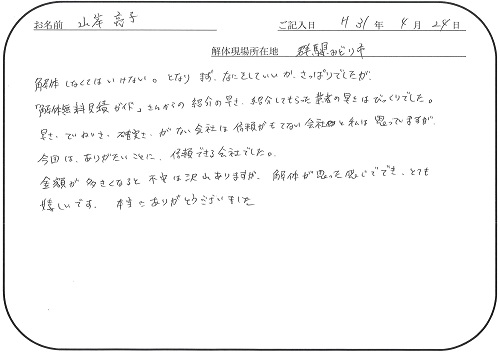 お名前 山岸 子 ご記入日 H31年 4月 24日
解体現場所在地 群馬県みどり市
解体しなくてはいけない。となり まず、なにをしていいか、さっぱりでしたが、
「解体無料見積ガイド」さんからの紹介の早さ、紹介してもらった業者の早さはびっくりでした。
早さ、ていねいさ、確実さ、がない会社は信頼がもてない会社と私は思っていますが、
今回は、ありがたいことに、信頼できる会社でした。
金額が多きくなると不安は沢山ありますが、解体が思った感じででき、とても
嬉しいです。 本当にありがとうございました